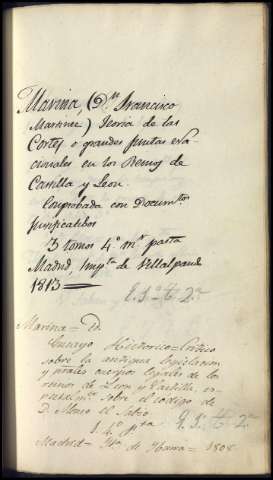 Marina, (Dn. Francisco
Martinez) Teoria de las
Cortes o grandes juntas na-
cionales en los Reinos de
Castilla y Leon.
Comprobada con Documtos
justificatibos
3 tomos 4º mª pasta
Madrid, Impta de Villalpand
1813
E. 1º t. 2º
Marina = Id
Ensayo Historico-critico
sobre la antigua legislacion
y prales cuerpos legales de los
reinos de Leon y Castilla, es-
pecialmte sobre el codigo de
D. Alonso el Sabio
1. 4º pta
E. 1º t. 2º
Madrid = Ibarra = 1808